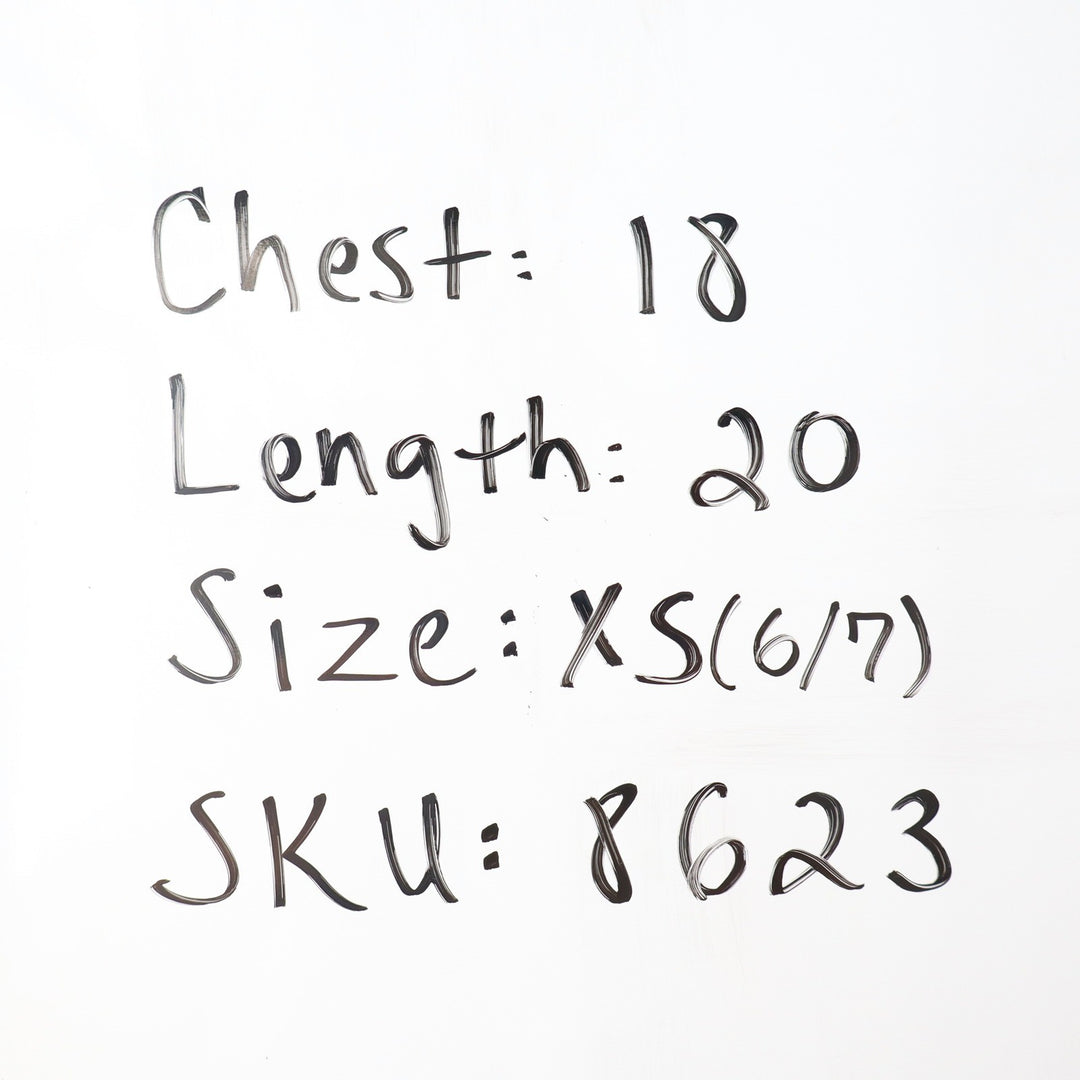 Chest: 18
Length: 20
Size: XS(6/7)
SKU: 8623